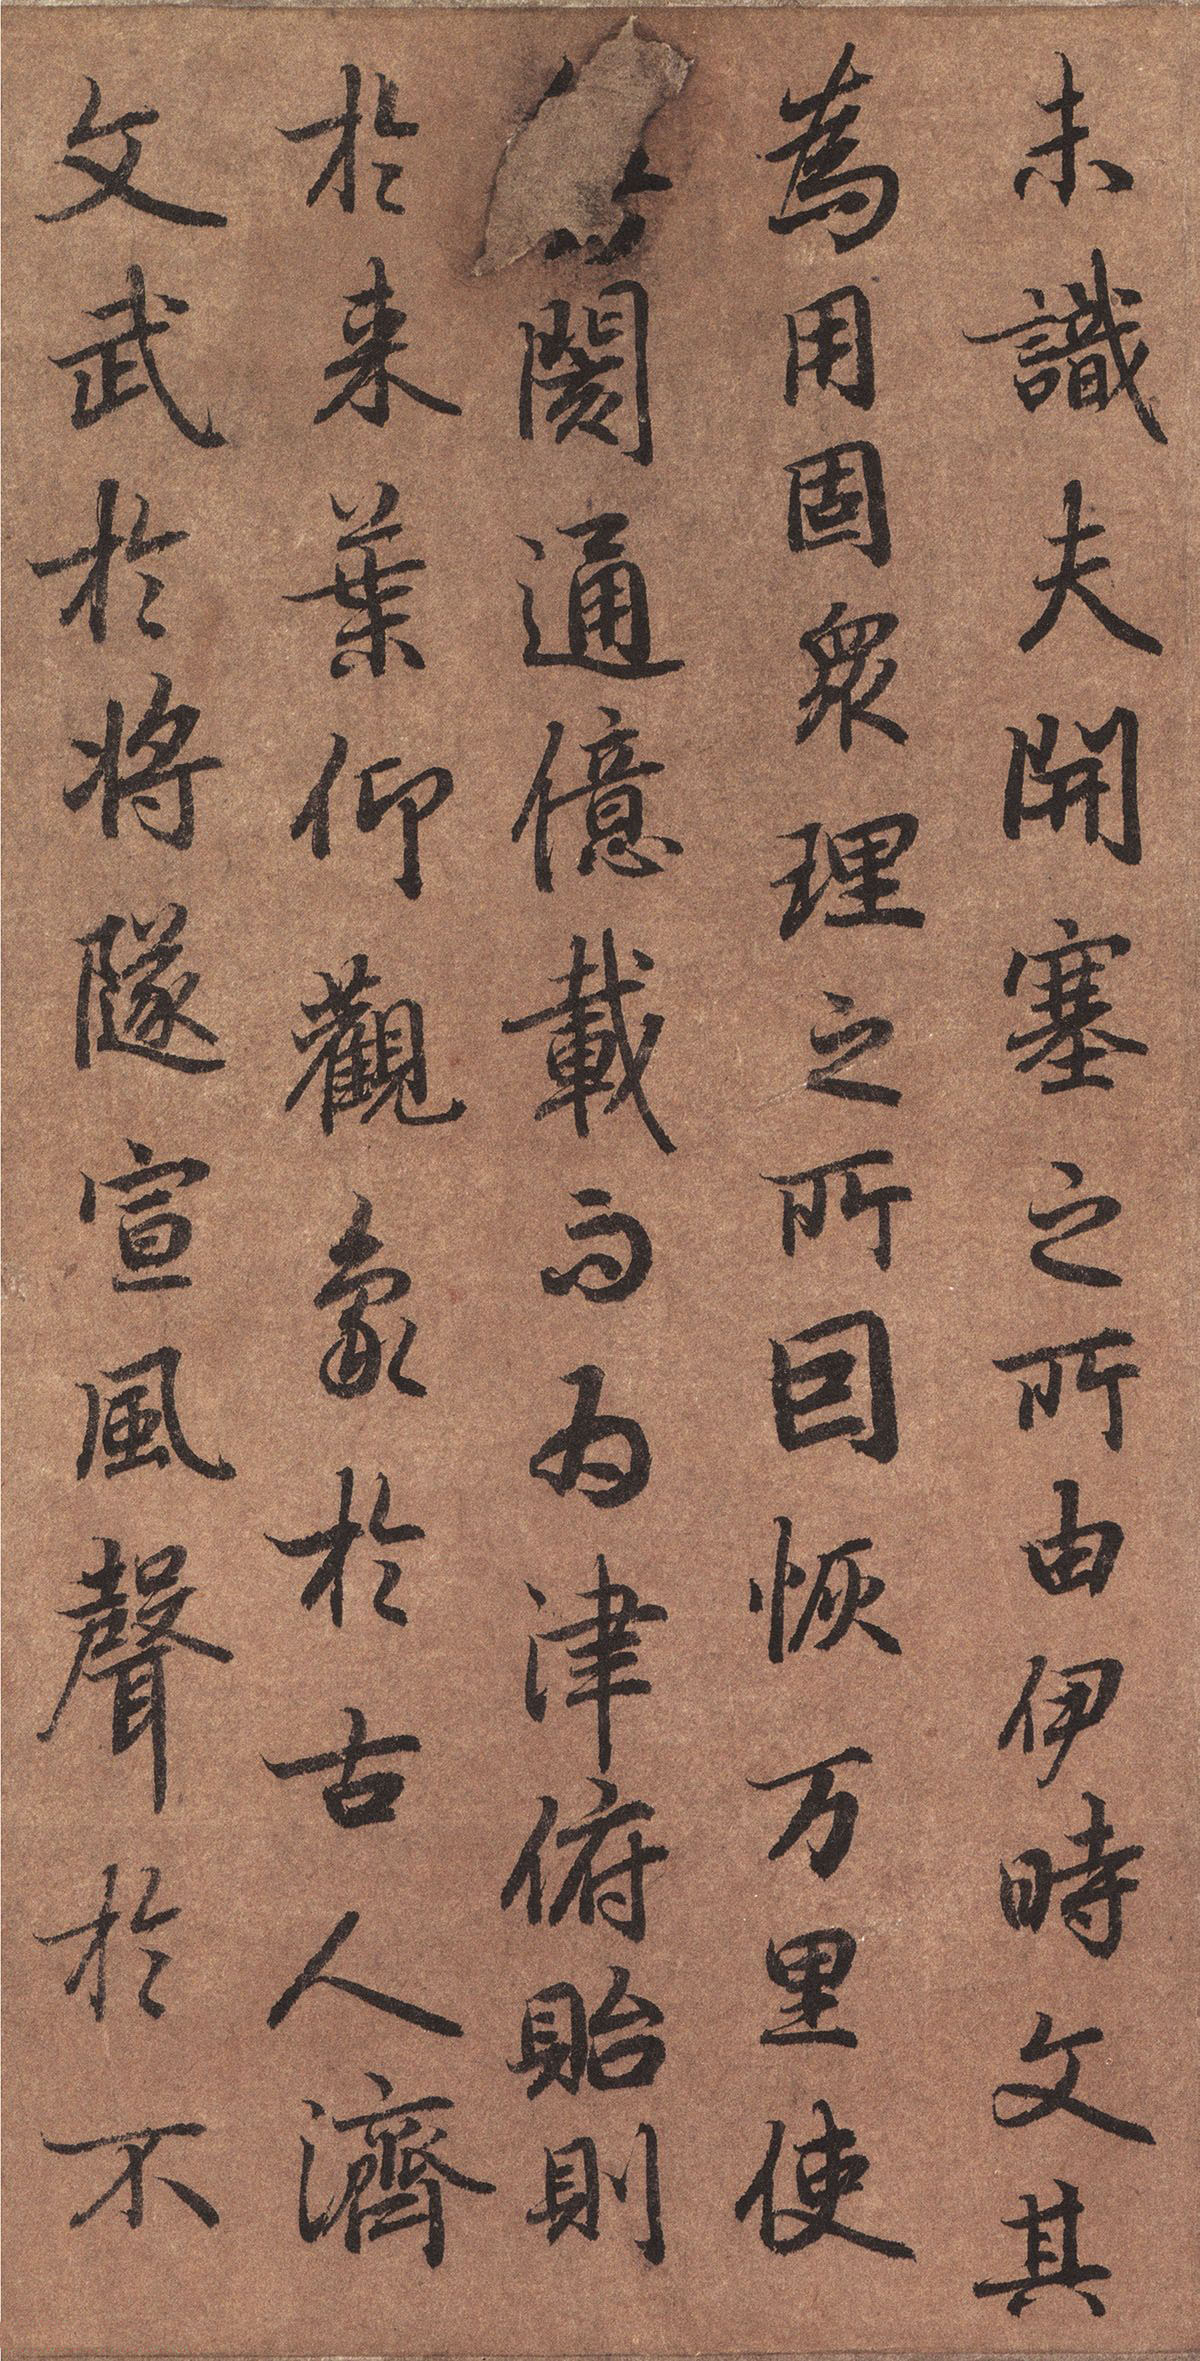 未識夫開塞之所由伊時文其
為用固衆理之所囙恢万里使
閡通億載而为津俯貽則
於来葉仰觀象於古人濟
文武於将隊宣風聲於不